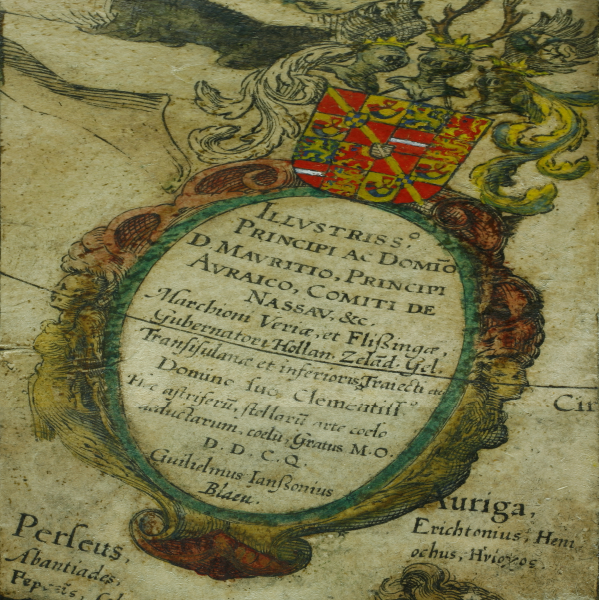 ILLVSTRISS.º
PRINCIPI AC DOMĪO
D. MAVRITIO, PRINCIPI
AVRAICO, COMITI DE
NASSAV. &c.
Marchioni Veriæ, et Flißingæ,
Gubernatori Hollan. Zelād. Gel.
Transisulanæ et inferioris Traiecti etc
Domino suo Clementiss.º
Hæ astriferū, stellarū arte coelo
deductarum, coelū, Gratus M.O.
D. D. C. Q.
Guilielmus Ianssonius
Blaeu.
Cir
Auriga,
Erichtonius, Heni
ochus, Ηνίοχος.
Perseus,
Abantiades,